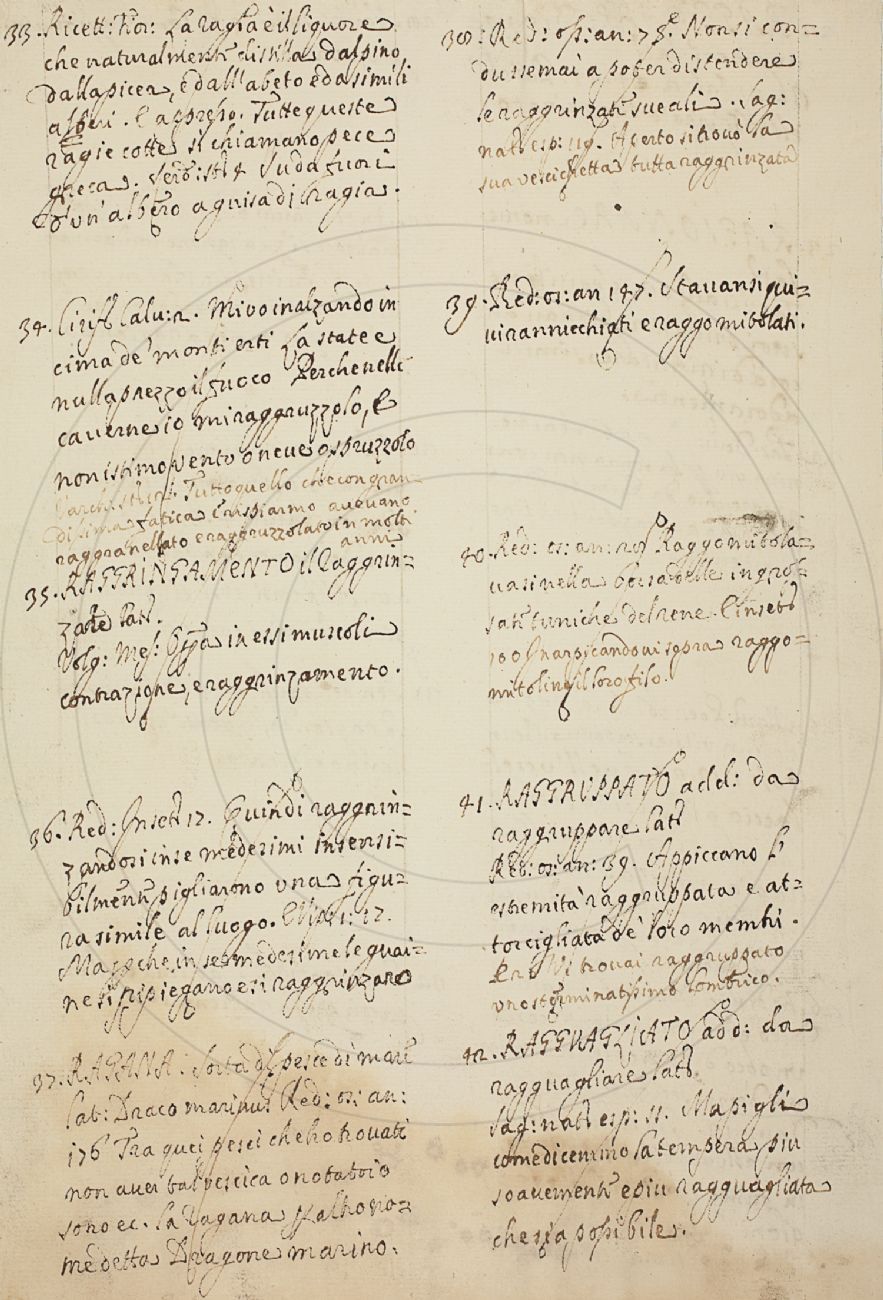 33. Ricett: Fior: La ragia è il liquore
che naturalmente distilla dal pino
dalla picea, e dall'abeto e da simili
alberi. E appresso. Tutte queste
ragie cotte si chiamano pece
greca. Suda fuori
d'un'albero a guisa di ragia.
34. Cirif: Calv: 2. Mivo inalzando in
cima de' monti erti La state e
nulla prezzo il fuoco Perche nelle
caverne io mi raggruzzolo, E
non istimo vento o neve o spruzzolo
Varch: Stor: Tutto quello che con gran-
dissima fatica e risparmio avevano
raggranellato e raggruzzolato in molti
anni
35. RAGGRINZAMENTO il Raggrin-
zare Lat:
Volg: Mes: in essi muscoli
contrazione, e raggrinzamento.
36. Red: Inset: 12. Quindi raggrin-
zandosi in se medesimi insensi-
bilmente pigliarono una figu-
ra simile al luogo. E 17.
Mapoche, in se medesime le guai-
ne si ripiegano e si raggrinzano
37. RAGANA: Sorta di pesce di mare
Lat: Draco marinus Red: os: an:
176 Tra quei pesci che ho trovati
non aver tal vescica o notatoio
sono ec. la Ragana, ho no-
me detta Dragone marino.
38: Red: os: an: 75. Non si con-
dusse mai a poter distendere
le raggrinzate sue ali. Sag:
nat: esp: 119. Aperto si trovò la
sua vescichetta tutta raggrinzata
39. Red: os: an 147. Stavansi qui-
vi rannicchiati e raggomitolati.
40. Red: os: an: Raggomitola-
vasi nella borsa delle ingros-
sate tuniche del rene. E inset:
100 Inarpicandovi sopra raggo-
mitolino il loro filo.
41. RAGGRUPPATO add: da
raggruppare Lat:
Red: os: an: 39. Appiccano l'
estremità raggruppata e at-
torcigliata de' loro membri.
E Vi trovai raggruppato
uno sterminatissimo lombrico.
42. RAGGUAGLIATO add: da
ragguagliare Lat:
Sag: nat: esp: 11. Ma pigli
come dicemmo la tempera piu
soavemente e piu ragguagliata
che sia possibile.